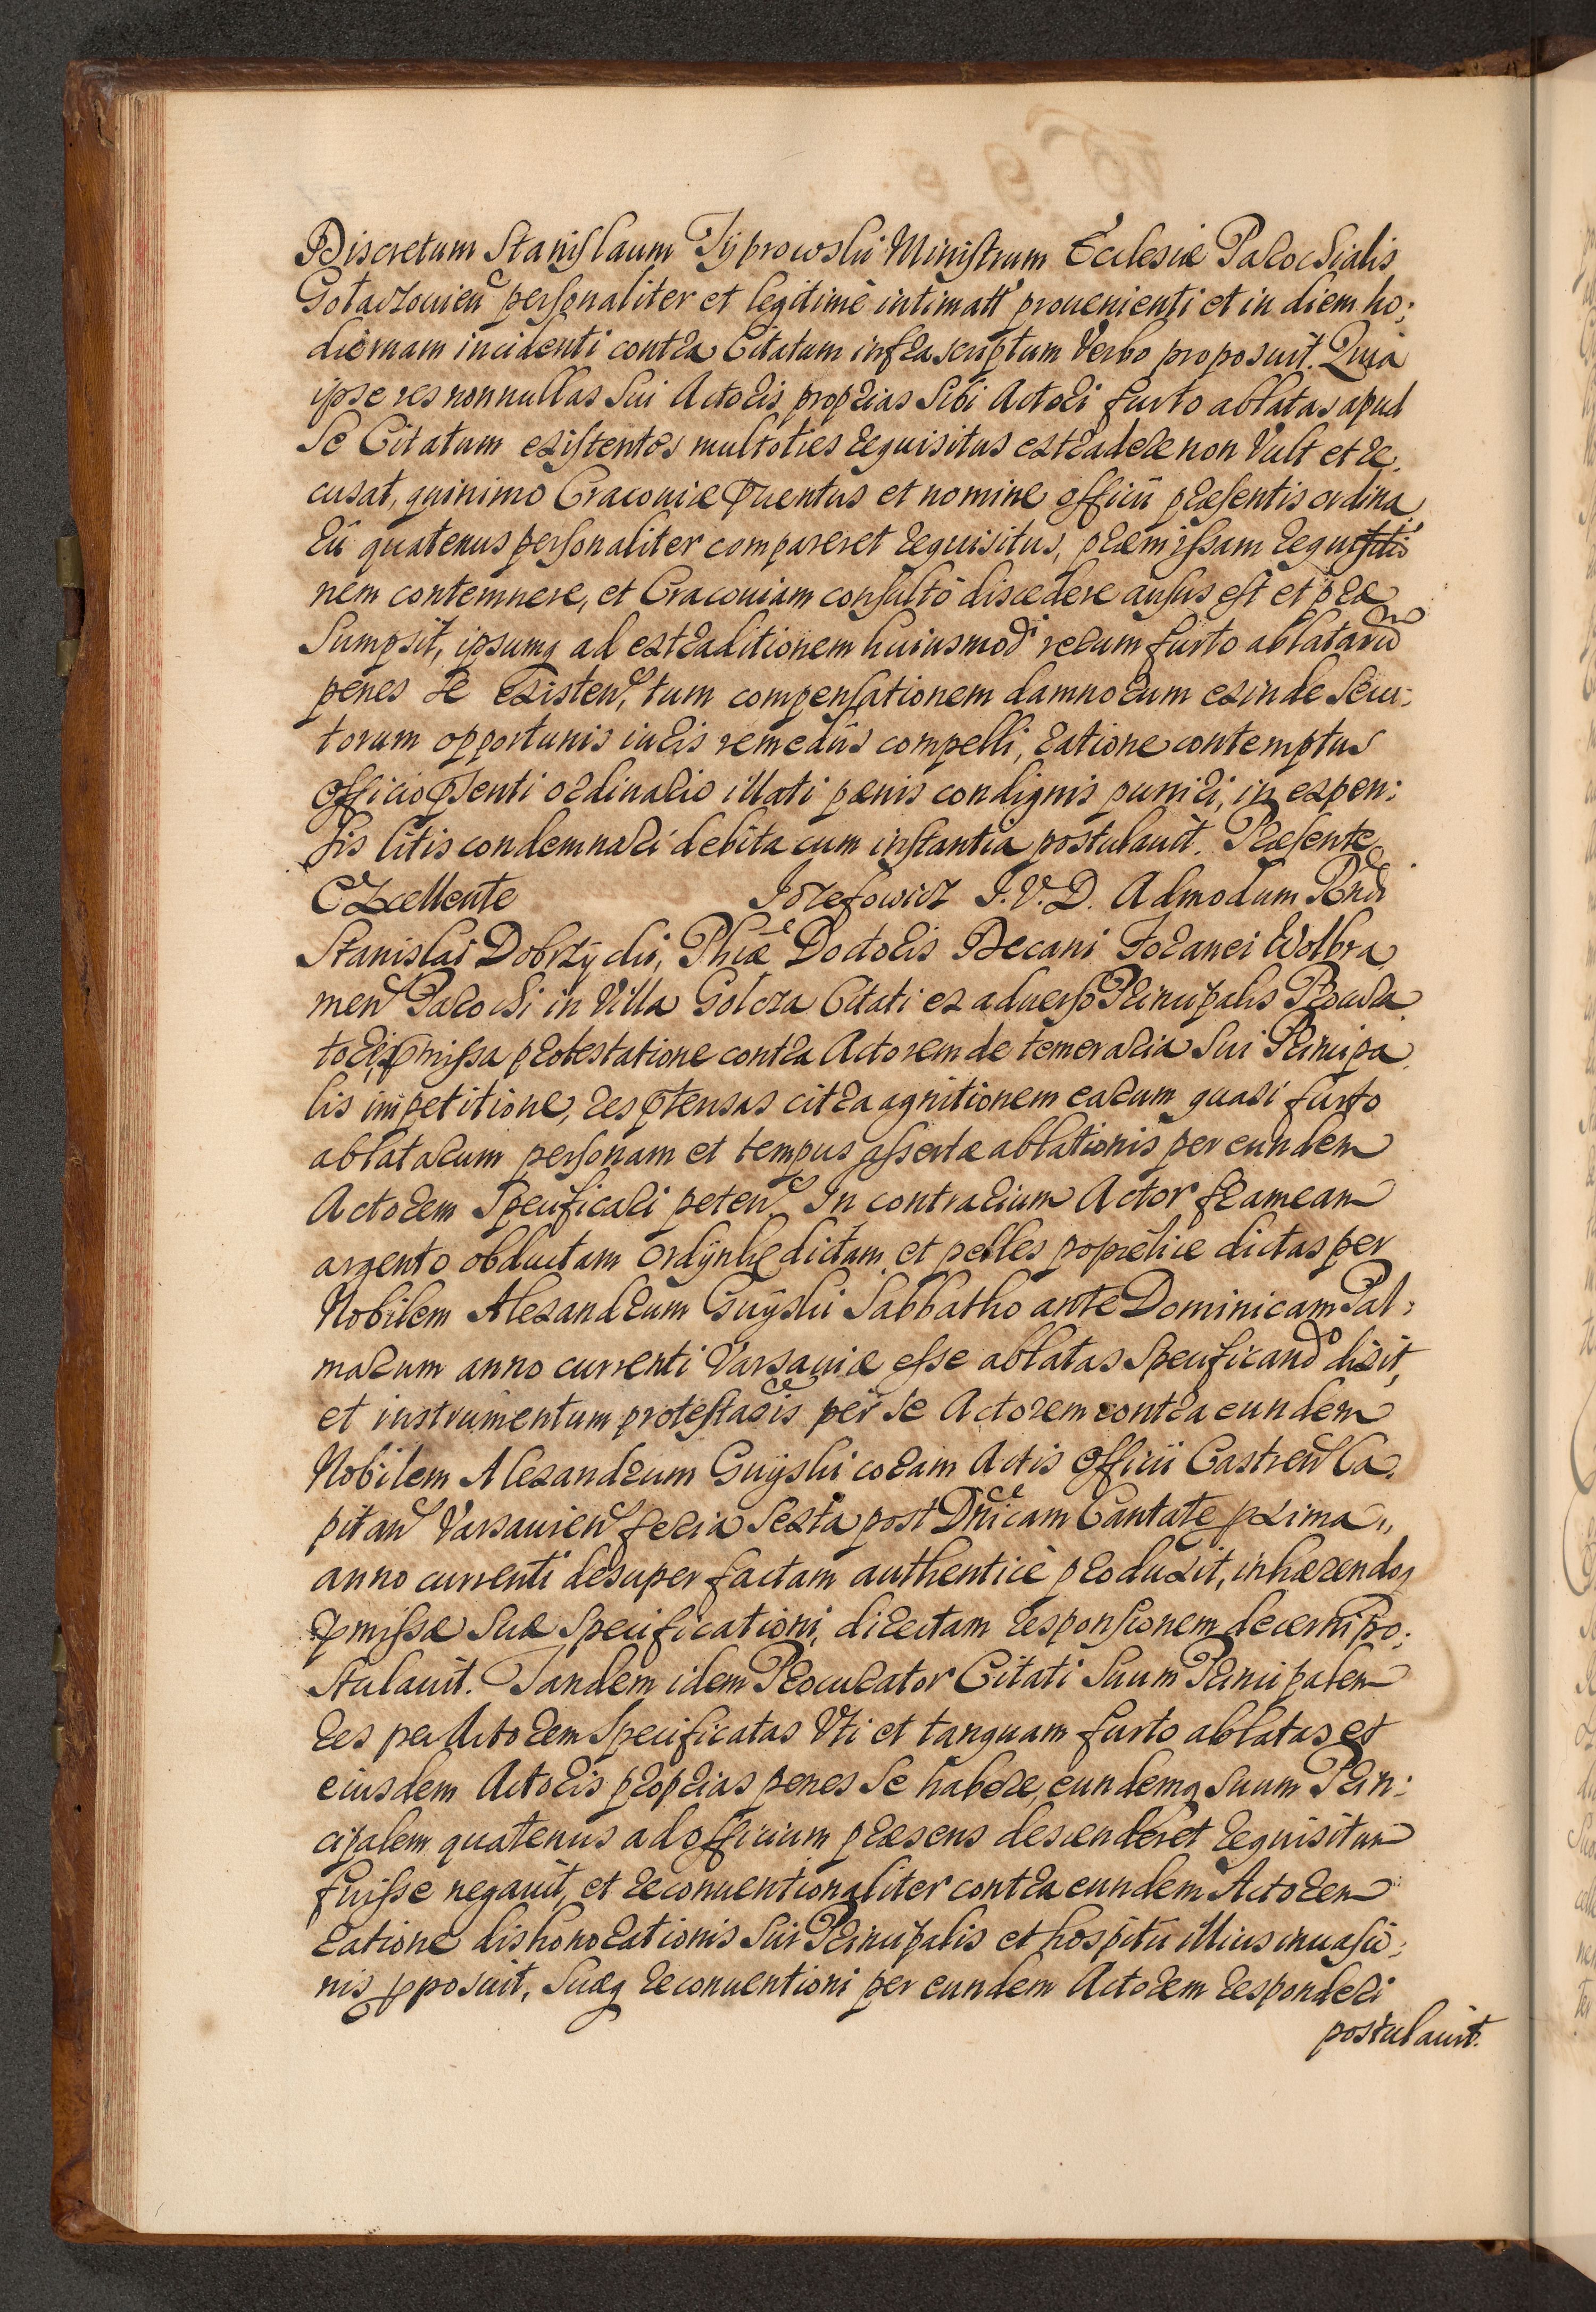 Discretum Stanislaum Tÿprowski Ministrum Ecclesiæ Parochialis
Gołaczouien personaliter et legitimè intimatt prouenienti et in diem ho:
diernam incidenti contra Citatum infrascriptum Verbo proposuit. Quia
ipse res nonnullas Sui Actoris proprias Sibi Actori furto ablatas apud
Se Citatum existentes multoties requisitus extradere non Vult et re,
cusat, quinimo Cracouiæ pñentus et nomine officii præsentis ordina,
rii quatenus personaliter compareret requisitus, præmissam requisitio
nem contemnere, et Cracouiam consultò discedere ausus est et præ
Sumpsit, ipsumq ad extraditionem huiusmodi rerum furto ablataru
penes se existen, tum compensationem damnorum exinde Secu:
torum opportunis iuris remediis compelli, ratione contemptus
officio psenti ordinario illati pænis condignis puniri, in expen:
sis litis condemnari debita cum instantia postulauit. Præsente
Excellente Jozefowicz J. V. D. Admodum Rndi
Stanislai Dobrzÿcki, Phiæ Doctoris Decani Foranei Wolbra,
men Parochi in Villa Golcza Citati ex aduerso Principalis Procura
tore, pmissa protestatione contra Actorem de temeraria Sui Principa,
lis impetitione, res ptensas citra agnitionem earum quasi furto
ablatarum personam et tempus assertæ ablationis per eundem
Actorem Specificari peten. In contrarium Actor frameam
argento obductam ordÿnkę dictam et pelles popielice dictas per
Nobilem Alexandrum Guÿski Sabbatho ante Dominicam Pal,
marum anno currenti Varsauiæ esse ablatas Specificando dixit,
et instrumentum protestaois per se Actorem contra eundem
Nobilem Alexandrum Guÿski coram Actis Officii Castren Ca,
pitan Varsauien feria Sexta post Dnicam Cantate pxima,,
anno currenti desuper factam authenticè produxit, inhærendoq
pmissæ Suæ Specificationi, directam responsionem decerni po:
stulauit. Tandem idem Procurator Citati Suum Principalem
res per Actorem Specificatas Vti et tanquam furto ablatas et
eiusdem Actoris proprias penes Se habere, eundemq Suum Prin:
cipalem quatenus ad officium præsens descenderet requisitum
fuisse negauit, et reconuentionaliter contra eundem Actorem
ratione dishonorationis Sui Principalis et hospitii illius inuasio:
nis pposuit, Suæq reconuentioni per eundem Actorem responderi
postulauit.